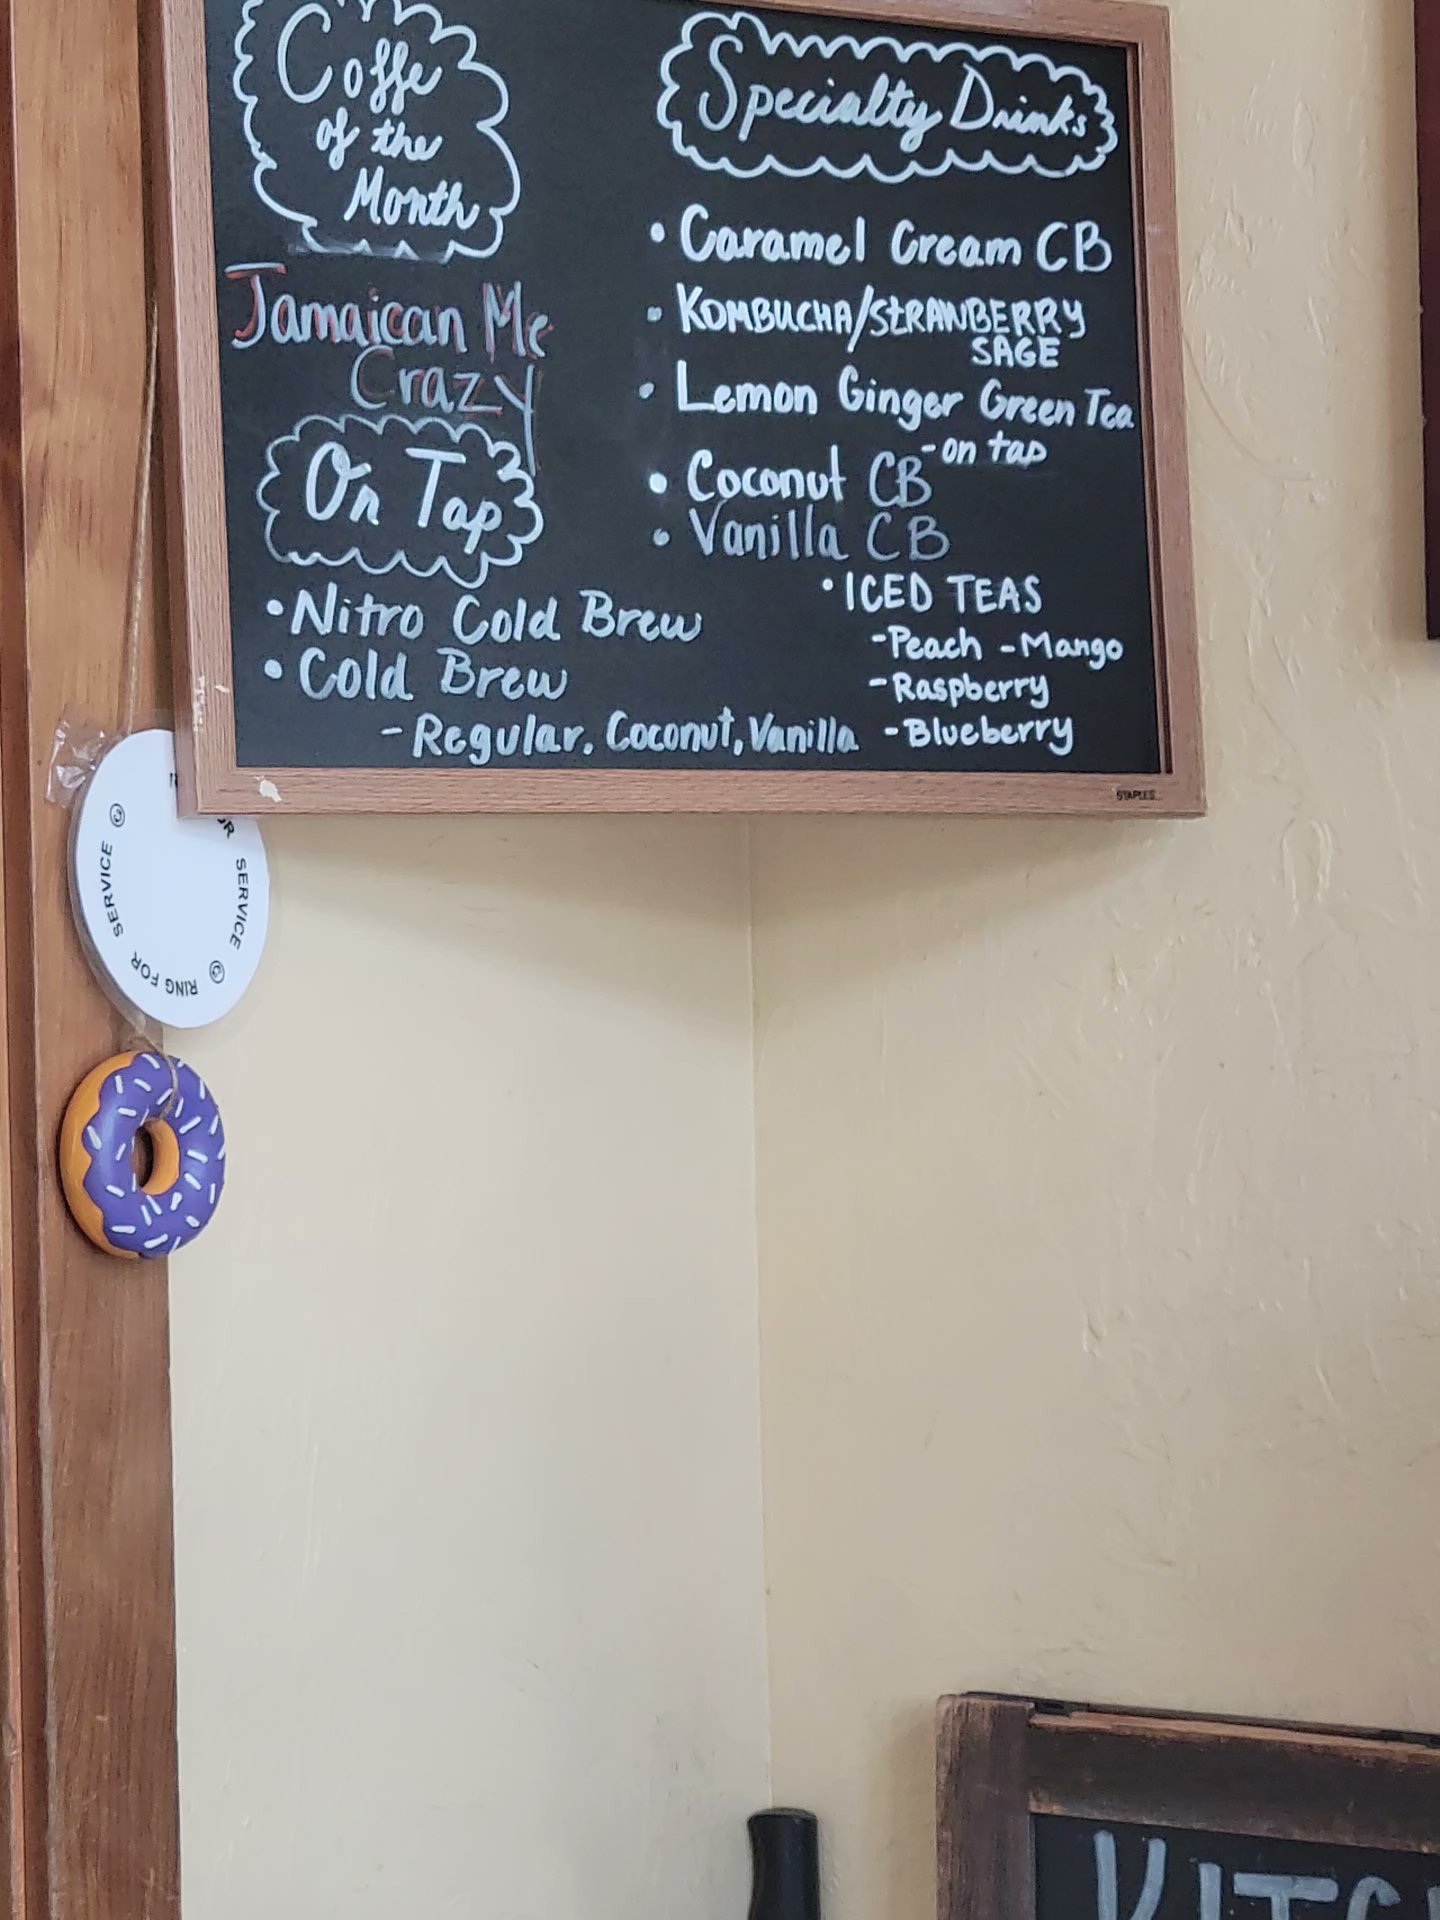 Coffe
of the
Month
Jamaican Me
Crazy
On Tap
• Nitro Cold Brew
• Cold Brew
- Regular, Coconut, Vanilla
Specialty Drinks
• Caramel Cream CB
• KOMBUCHA/STRAWBERRY
SAGE
• Lemon Ginger Green Tea
- on tap
• Coconut CB
• Vanilla CB
• ICED TEAS
- Peach - Mango
- Raspberry
- Blueberry
STAPLES
SERVICE
RING FOR SERVICE